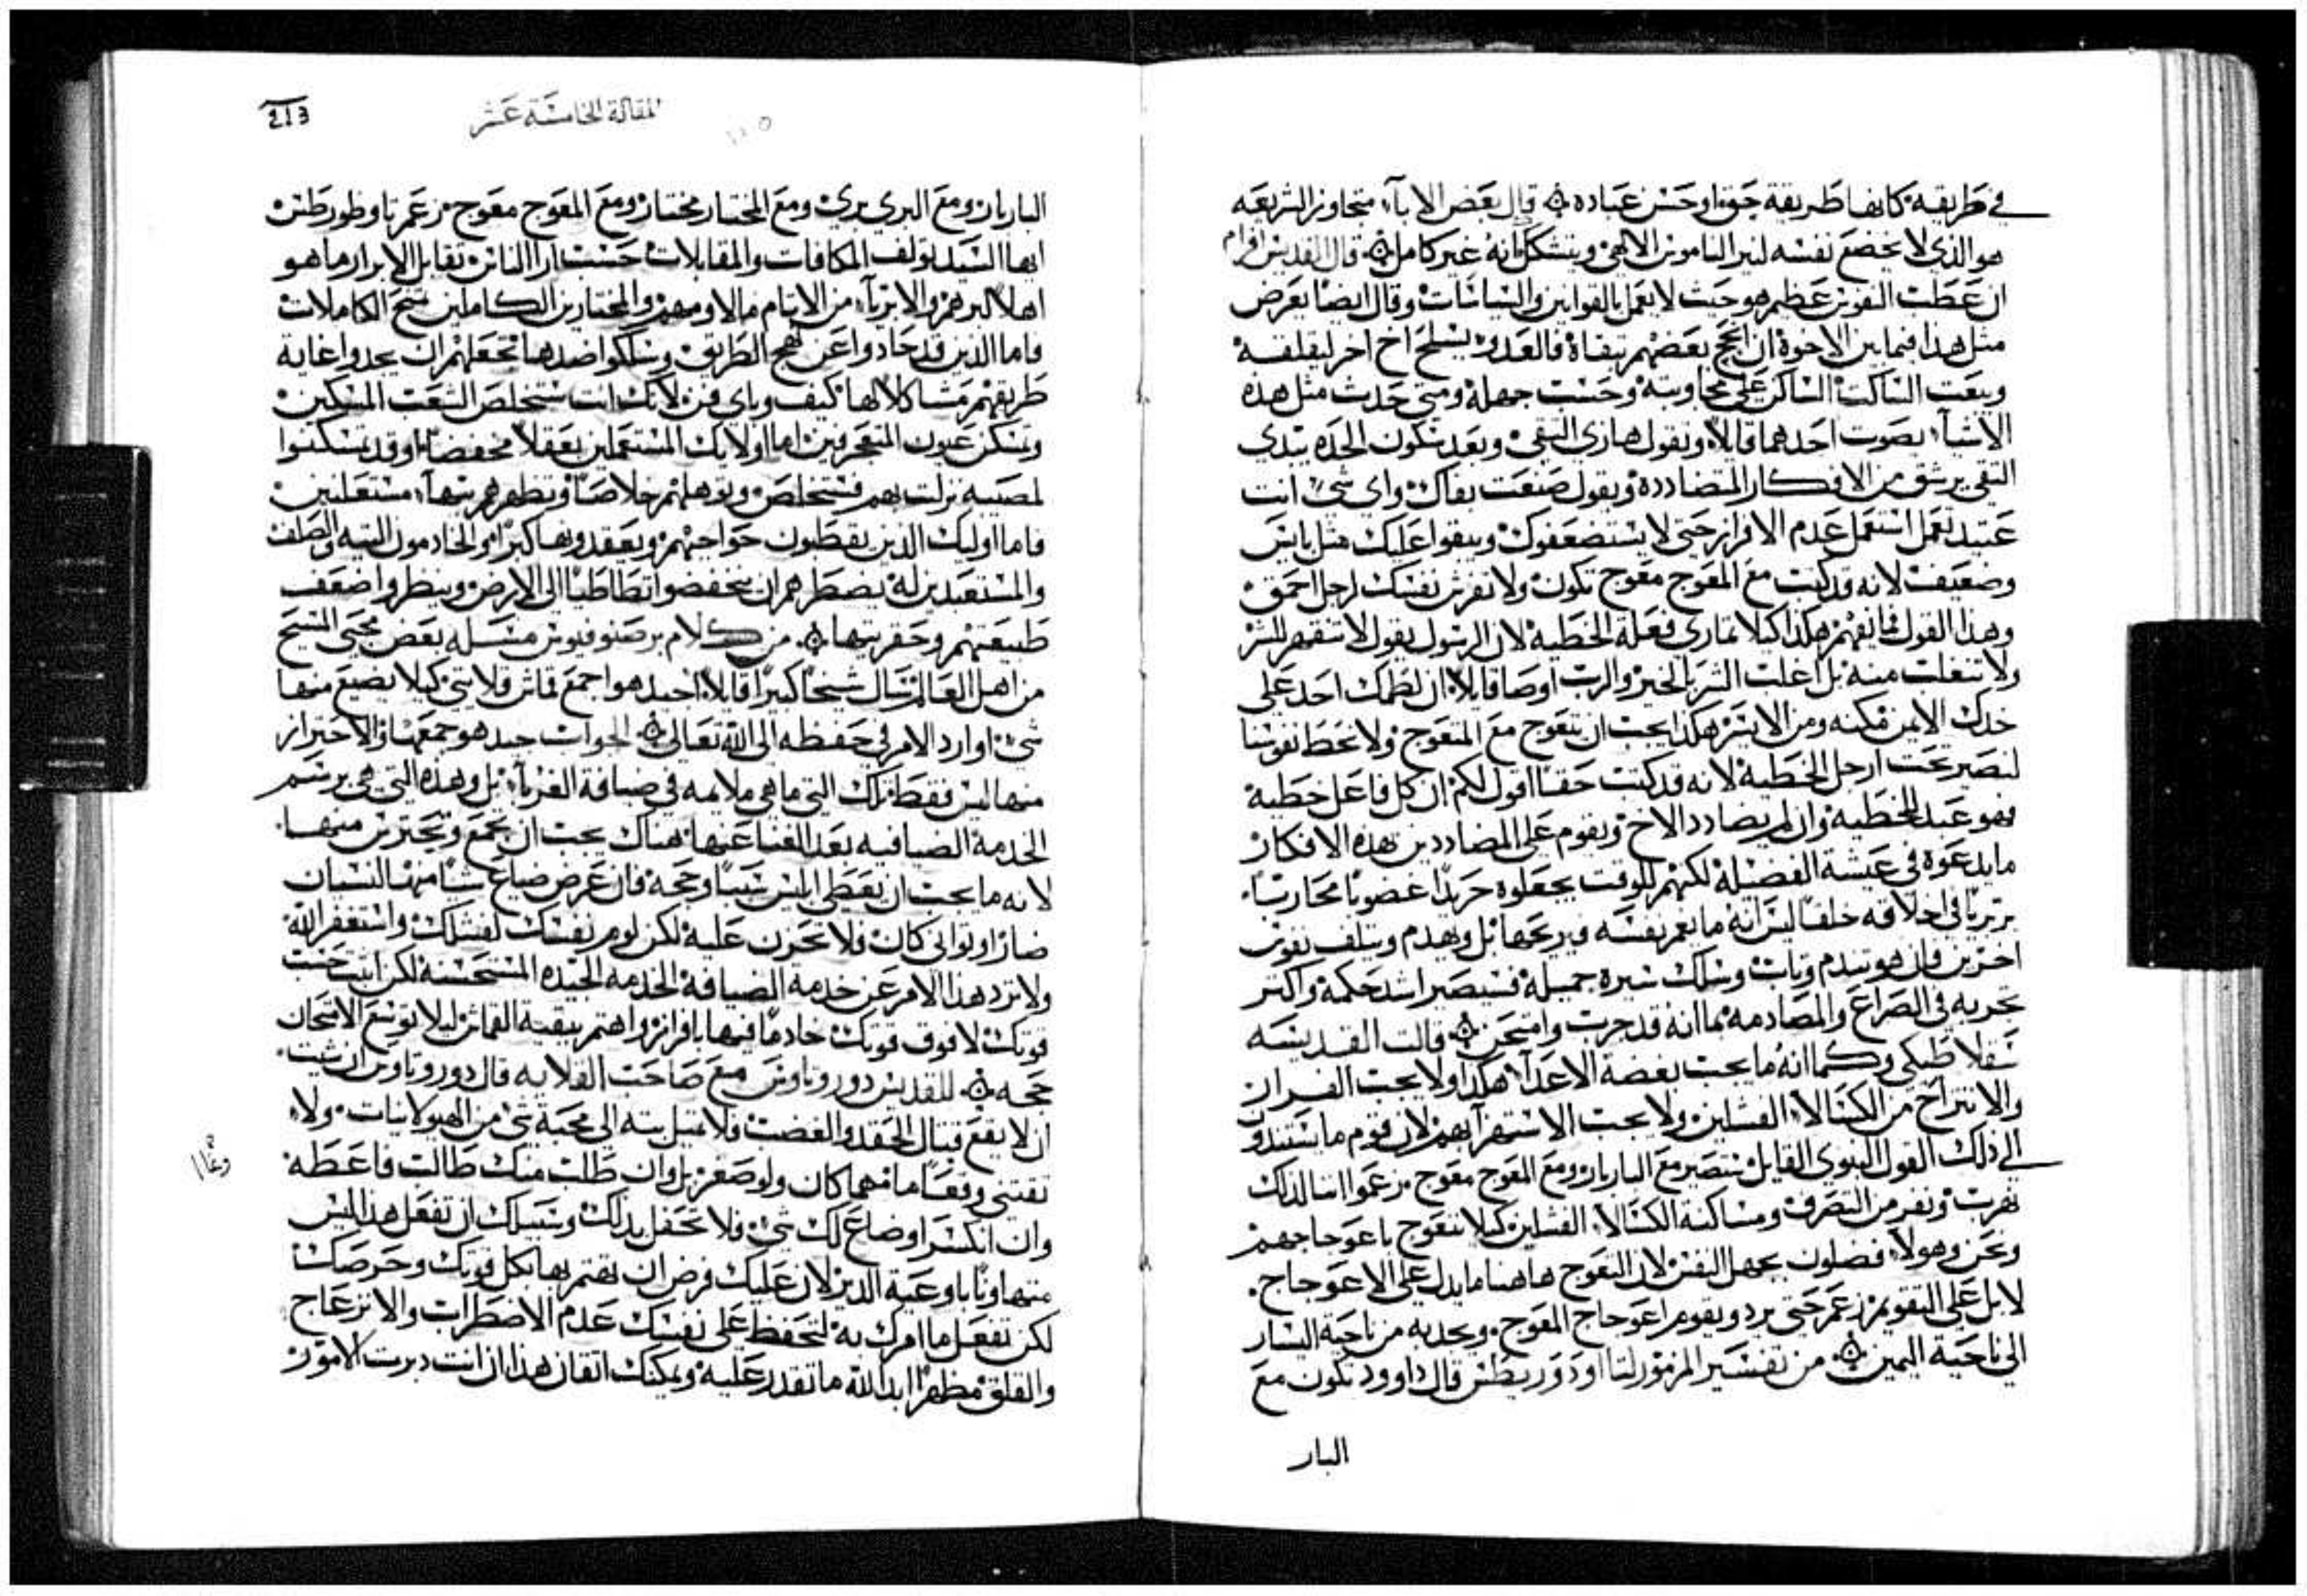 في طريقيه كانها طريقة حق او حسن عباده ۞ قال بعض الابآء متجاوز الشريعه
هو الذي لا يخضع نفسه لنير الناموس الالهي ويتشكل بانه غير كامل ۞ قال القديس افرام
ان عطب النفوس عظيم هو حيث لا يعمل بالقوانين والسياسات وقال ايضًا يعرض
مثل هذا فيما بين الاخوة ان انحج بعضهم بتقاة فالعدو يسلح اخ اخر ليقلقه
ويبعت الساكت الساكن على مجاوبته وحسب جهله ومتى حدث مثل هذه
الاشيآء بصوت احدهما قايلاً وتقول هازي التقي وبعد سكون الحده يبتدي
التقي يرشق من الافكار المتضادده ويقول صنعت بفاك واي شي انت
عتيد تعمل استعمل عدم الافراز حتى لا يستضعفوك ويبقوا عليك مثل بايس
وضعيف لانه قد كتب مع المعوج معوج تكون ولا تفرش نفسك لرجل احمق
وهذا القول فانفهم هكذا كيلا نماري فعلة الخطيه لان الرسول يقول لا تنقهر للشر
ولا تنغلب منه بل اغلب الشر بالخير والرب اوصا قايلاً ان لطمك احد على
خدك الايمن مكنه ومن الايسر هكذا يجب ان نتعوج مع المتعوج ولا نحط نفوسنا
لنصير تحت ارجل الخطيه لانه قد كتب حقًا اقول لكم ان كل فاعل خطيه
فهو عبد للخطيه وان لم يضادد الاخ ويقوم على المضاددين بهذه الافكار
ما يدعوه في عيشة الفضيلة لكنهم للوقت يجعلوه حربدًا غضوبًا محاربًا
بربريًا في اخلاقه خلقًا ليس انه ما يعمر نفسه ويربحها بل ويهدم ويتلف نفوس
اخرين وان هو تندم وتاب وسلك سيره جميلة فسيصير اشد حكمة واكثر
تجربه في الصراع والمصادمه بما انه قد جرب وامتحن ۞ قالت القديسه
سفلاطيكي وكما انه ما يجب بغضة الاعدآء هكذا ولا يجب الفرار
والانتزاح من الكسالاء الفشلين ولا يجب الاستهزآ بهم لان قوم ما يسندون
الى ذلك القول النبوي القايل ستصير مع البار بار ومع المعوج معوج زعموا اننا لذلك
نهرب ونفر من التصرف ومساكنة الكسالاء الفشلين كيلا نتعوج باعوجاجهم
ونحن وهولاء فضلون بجهل النفس لان التعوج هاهنا ما يدل على الاعوجاج
لا بل على التقويم زعم حتى يرد ويقوم اعوجاج المعوج ويجذبه من ناحية اليسار
الى ناحية اليمين ۞ من تفسير المزمور لتااودوريطس قال داوود تكون مع
البار
المقالة الخامسة عشر
213
البار بار ومع البري بري ومع المختار مختار ومع المعوج معوج زعم تاوظوريطس
ايها السيد تولف المكافات والمقابلات حسب ارا الناس تقابل الابرار ما هو
اهلا لبرهم والابريآء من الاثام ما لاومهم والمختارين الكاملين منح الكاملات
فاما الذين قد حادوا عن نهج الطريق وسلكوا ضدها تجعلهم ان يجدوا غاية
طريقهم مشاكلا لها كيف وباي فن لانك انت ستخلص الشعب المسكين
وتسكن عيون المتعجرفين اما اوليك المستعملين بعقلا مخفضا وقد تسكنوا
لمصيبه نزلت بهم فستخلص وتوهلهم خلاصًا وتطهرهم بتهآء مستعلنين
فاما اوليك الذين يقطبون حواجبهم ويعقدونها كبرًا والخادمون التيه والصلف
والمستعبدين له يضطرهم ان ينخفضوا تطاطيًا الى الارض وينظروا ضعف
طبيعتهم وحقريتها ۞ من كلام برصنوفيوس مسيله بعض محبي المسيح
من اهل العالم سال شيخًا كبيرًا قايلاً اجيد هو اجمع قماش قلايتي كيلا يضيع منها
شي او ارد الامر في حفظه الى الله تعالى ۞ الجواب جيد هو جمعها والاحتراز
منها ليس فقط تلك التي ما هي ملايمه في ضيافة الغربآء بل وهذه التي هي برسم
الخدمة الضيافيه بعد الغنا عنها هناك يجب ان تجمع وتحترس منها
لانه ما يجب ان نعطي ابليس سببًا وحجة فان عرض ضياع شيًا منها لنسيان
صار او تواني كان فلا تحزن عليه لكن لوم نفسك لفشلك واستغفر الله
ولا ترد هذا الامر عن خدمة الضيافه الخدمه الجيده المستحسنه لكن اتبت حسب
قوتك لا فوق قوتك خادمًا فيها بافراز واهتم ببقية القماش ليلا توسع الامتحان
حجه ۞ للقديس دوروتاوس مع صاحب القلايه قال دوروتاوس ان شيت
ان لا يقع قبال الحقد والغضب فلا تميل بته الى محبة شي من الهيولانيات ولا
تقتني وقعًا ما مهما كان ولو صغر بل وان طلب منك طالب فاعطه
وغالا
وان انكسر او ضاع لك شي فلا تحفل بذلك وسبيلك ان تفعل هذا ليس
متهاونًا باوعية الدير لان عليك فرض ان تهتم بها بكل قوتك وحرصك
لكن تفعل ما امرك به لتحفظ على نفسك عدم الاضطراب والانزعاج
والقلق مظهرًا ابدا لله ما تقدر عليه ويمكنك اتقان هذا ان انت دبرت الامور